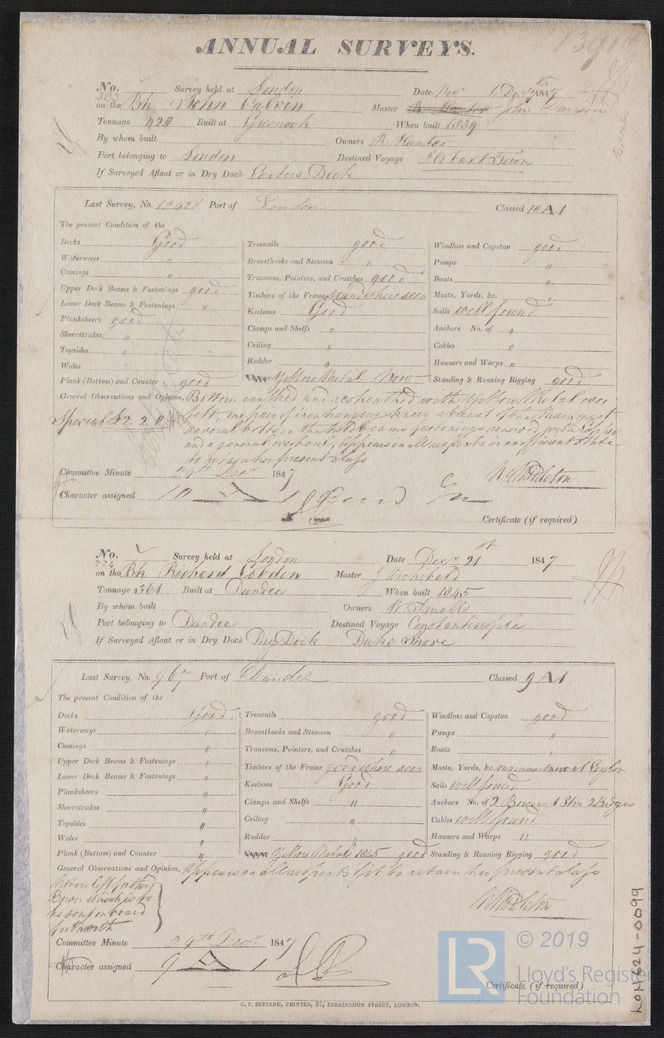 ANNUAL SURVEYS.
No. Survey held at London Date Nov. & Dec. 1847
on the Bk John Calvin Master John Dawson
Tonnage 429 Built at Greenock When built 1839
By whom built Owners R. Hunter
Port belonging to London Destined Voyage Hobart Town
If Surveyed Afloat or in Dry Dock Dock
Last Survey, No. Port of London Classed 10 A 1
The present Condition of the
Decks Good Treenails good Windlass and Capstan good
Waterways " Breasthooks and Stemson " Pumps "
Comings " Transoms, Pointers, and Crutches good Boats "
Upper Deck Beams & Fastenings good Timbers of the Frame good where seen Masts, Yards, &c. "
Lower Deck Beams & Fastenings " Keelsons Good Sails well found
Planksheers good Clamps and Shelfs " Anchors No. of "
Sheerstrakes " Ceiling " Cables "
Topsides " Rudder " Hawsers and Warps "
Wales " Yellow Metal New Standing & Running Rigging good
Plank (Bottom) and Counter good
General Observations and Opinion, Bottom caulked and resheathed with Yellow Metal over
felt, one pair of iron hanging knees abreast of the main mast
Special £2.2.0 several bolts in the hold beams
and a general overhaul, Appears in all respects in an efficient State
to retain her present class
Committee Minute 1847
Character assigned 10 A 1
Certificate (if required)
No. Survey held at London Date Decr 21st 1847
on the Bk Richard Cobden Master J Archibald
Tonnage 361 Built at Dundee When built 1845
By whom built Owners W. Small
Port belonging to Dundee Destined Voyage Constantinople
If Surveyed Afloat or in Dry Dock Dry Dock Duke Shore
Last Survey, No. 967 Port of Dundee Classed 9 A 1
The present Condition of the
Decks Good Treenails good Windlass and Capstan good
Waterways " Breasthooks and Stemson " Pumps "
Comings " Transoms, Pointers, and Crutches " Boats "
Upper Deck Beams & Fastenings " Timbers of the Frame good where seen Masts, Yards, &c.
Lower Deck Beams & Fastenings " Keelsons Good Sails well found
Planksheers " Clamps and Shelfs " Anchors No. of 2 Bowers 1 Stm 2 Kedges
Sheerstrakes " Ceiling " Cables well found
Topsides " Rudder " Hawsers and Warps "
Wales " Yellow Metal 1845 good Standing & Running Rigging good
Plank (Bottom) and Counter "
General Observations and Opinion, Appears in all respects fit to retain her present class
Committee Minute 24th Decr. 1847
Character assigned 9 A 1
Certificate (if required)
C. F. SEYFANG, PRINTER, 57, FARRINGDON STREET, LONDON.
LON624-0099
LR
© 2019
Lloyd's Register
Foundation